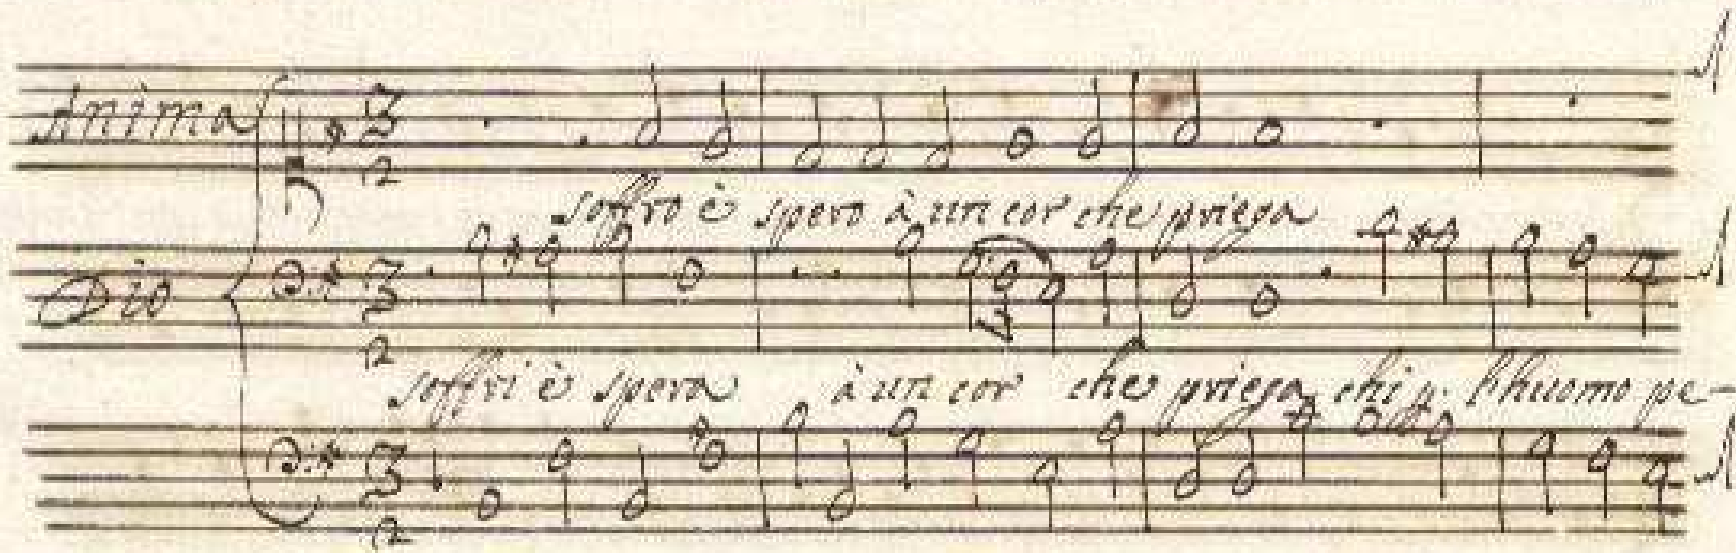 Anima
soffro è spero à un cor che priega
Dio
soffri è spera à un cor che priega chi p. l'huomo pe-